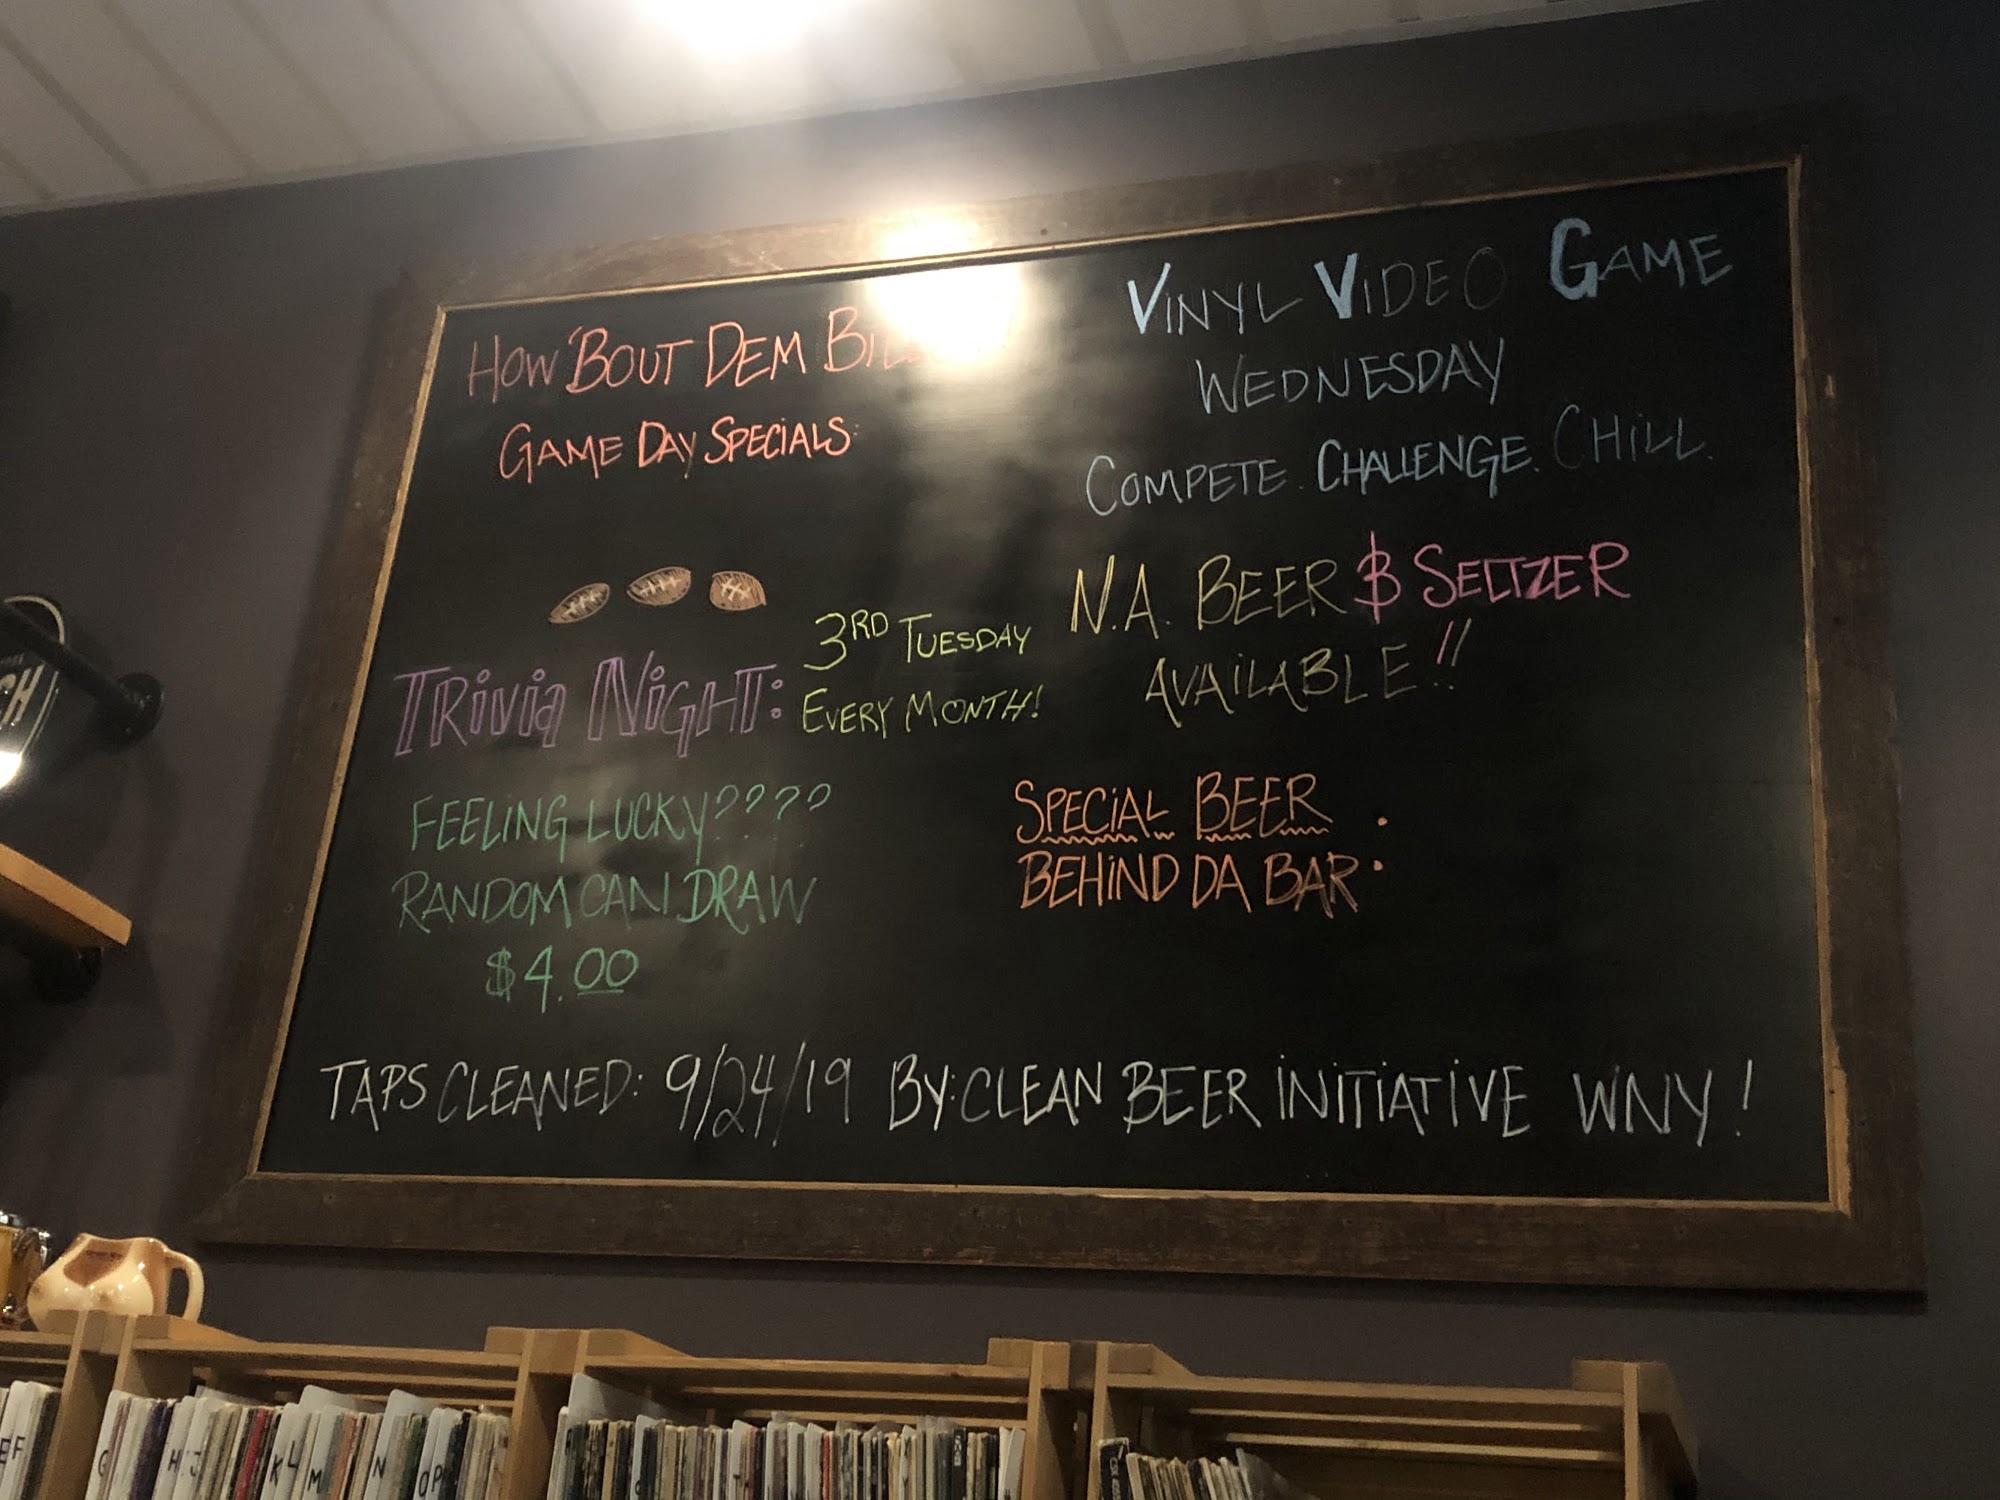 How 'Bout Dem
Game Day Specials:
Vinyl Video Game
Wednesday
Compete. Challenge. Chill.
N.A. Beer & Seltzer
Available!!
Trivia Night:
3rd Tuesday
Every Month!
Feeling Lucky????
Random Can Draw
$4.00
Special Beer
Behind Da Bar:
Taps Cleaned: 9/24/19 By: Clean Beer Initiative WNY!
EF
G
H
IJ
K
L
M
N
OP